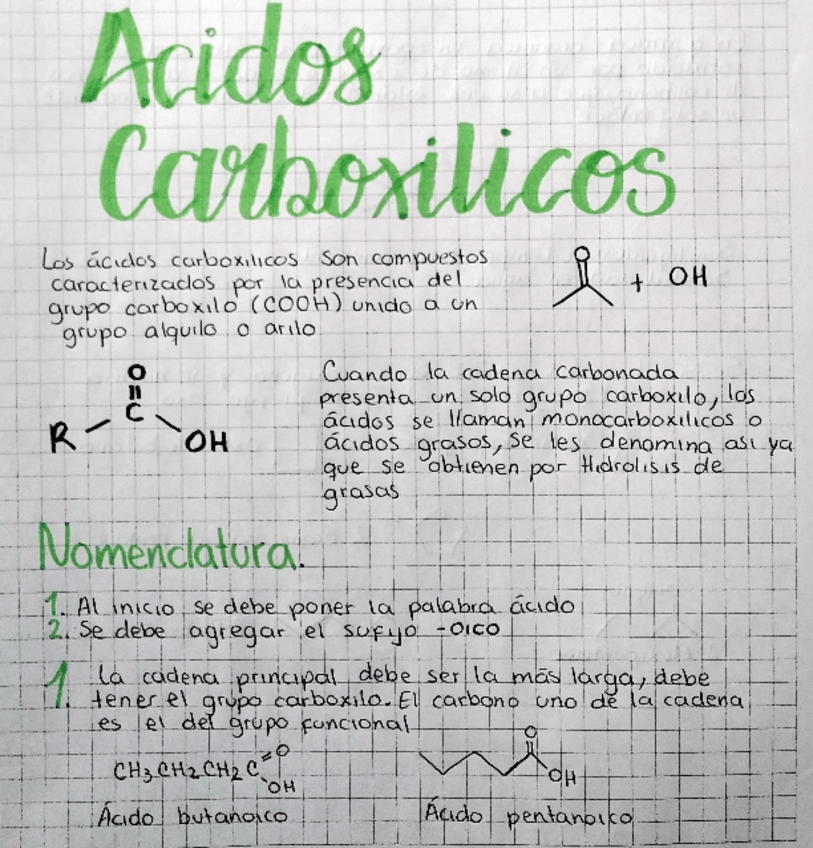 Acidos
Carboxilicos
Los ácidos carboxilicos son compuestos
caracterizados por la presencia del
grupo carboxilo (COOH) unido a un
grupo alquilo o arilo
O
+ OH
O
C
R
OH
Cuando la cadena carbonada
presenta un solo grupo carboxilo, los
ácidos se llaman monocarboxilicos o
ácidos grasos, se les denomina asi ya
que se obtienen por Hidrolisis de
grasas
Nomenclatura.
1. Al inicio se debe poner la palabra ácido
2. Se debe agregar el sufijo -oico
1. La cadena principal debe ser la más larga, debe
tener el grupo carboxilo. El carbono uno de la cadena
es el del grupo funcional
CH3CH2CH2C=O
OH
O
OH
Ácido butanoico
Ácido pentanoico